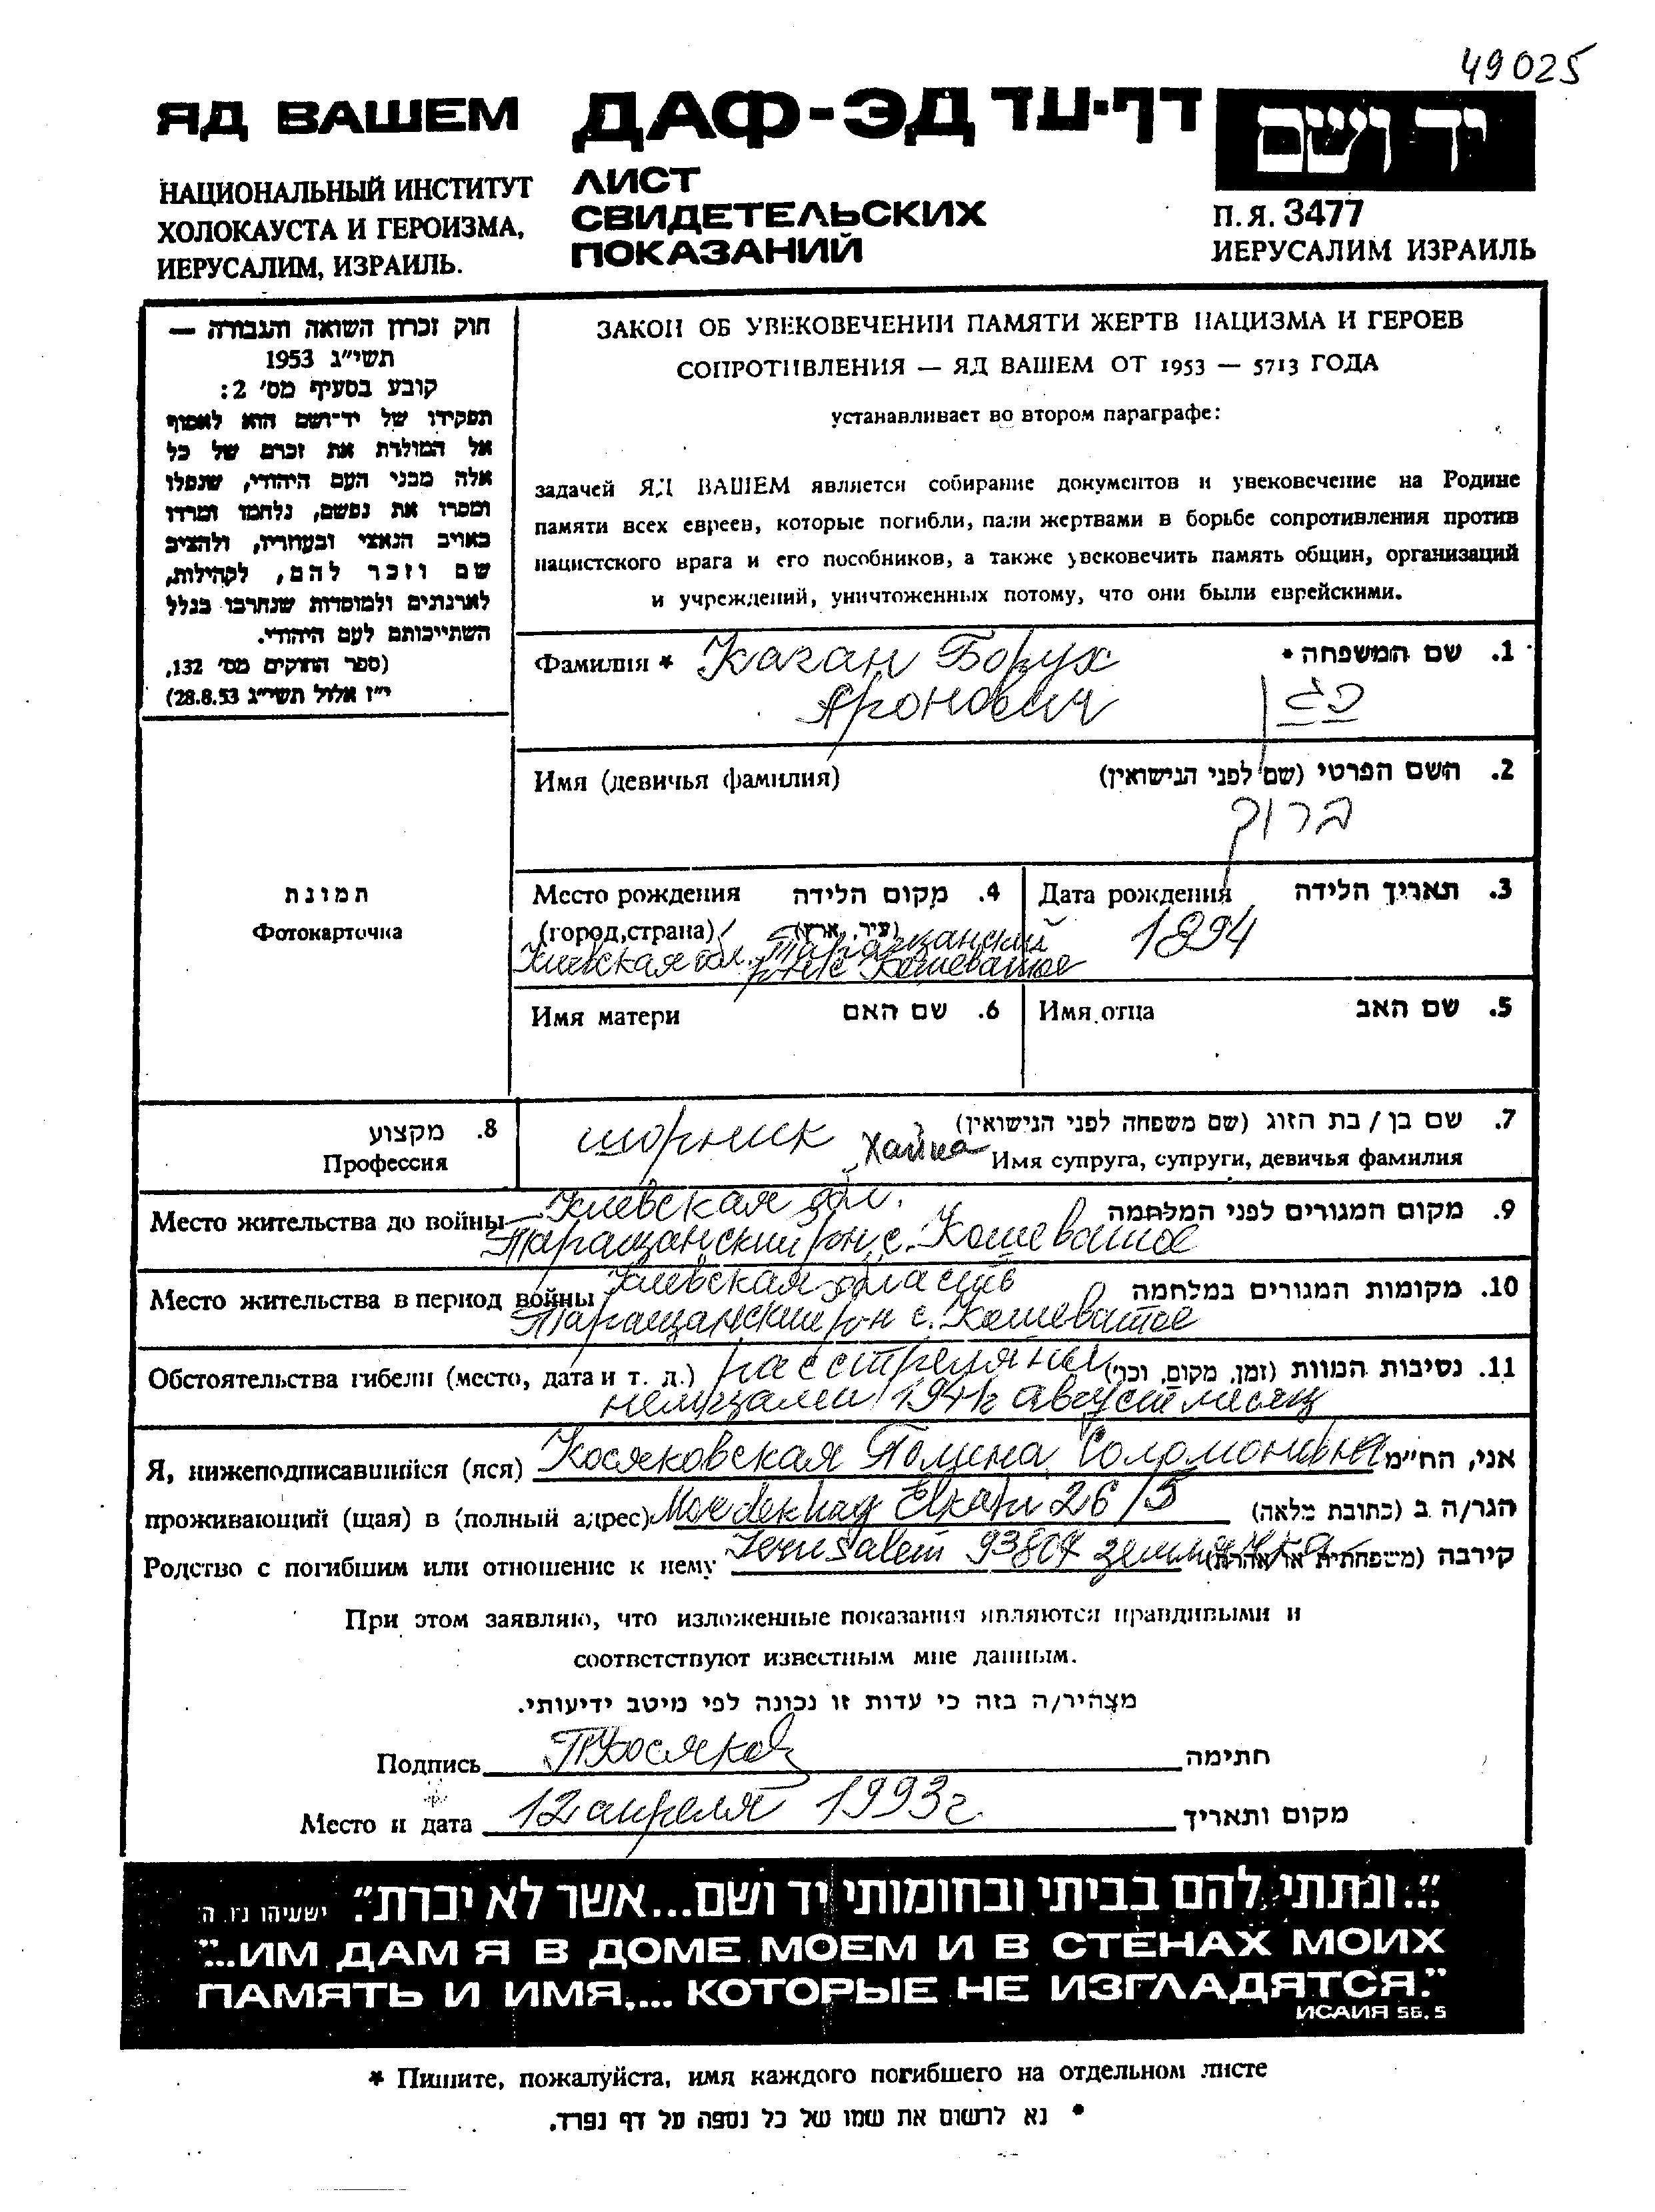 49025
ЯД ВАШЕМ ДАФ-ЭД דף-עד יד ושם
НАЦИОНАЛЬНЫЙ ИНСТИТУТ
ХОЛОКАУСТА И ГЕРОИЗМА,
ИЕРУСАЛИМ, ИЗРАИЛЬ.
ЛИСТ
СВИДЕТЕЛЬСКИХ
ПОКАЗАНИЙ
П.Я. 3477
ИЕРУСАЛИМ ИЗРАИЛЬ
חוק זכרון השואה והגבורה —
תשי״ג 1953
קובע בסעיף מס׳ 2:
תפקידו של יד־ושם הוא לאסוף
אל המולדת את זכרם של כל
אלה מבני העם היהודי, שנפלו
ומסרו את נפשם, נלחמו ומרדו
באויב הנאצי ובעוזריו, ולהציב
שם וזכר להם, לקהילות,
לארגונים ולמוסדות שנחרבו בגלל
השתייכותם לעם היהודי.
(ספר החוקים מס׳ 132,
י״ז אלול תשי״ג 28.8.53)
ЗАКОН ОБ УВЕКОВЕЧЕНИИ ПАМЯТИ ЖЕРТВ НАЦИЗМА И ГЕРОЕВ
СОПРОТИВЛЕНИЯ — ЯД ВАШЕМ ОТ 1953 — 5713 ГОДА
устанавливает во втором параграфе:
задачей ЯД ВАШЕМ является собирание документов и увековечение на Родине
памяти всех евреев, которые погибли, пали жертвами в борьбе сопротивления против
нацистского врага и его пособников, а также увековечить память общин, организаций
и учреждений, уничтоженных потому, что они были еврейскими.
Фамилия * Каган Борух 1. שם המשפחה *
Аронович כגן
Имя (девичья фамилия) 2. השם הפרטי (שם לפני הנישואין)
ברוך
Место рождения 4. מקום הלידה Дата рождения 3. תאריך הלידה
(город,страна) (עיר, ארץ) 1894
Киевская обл. Таращанский
р-н с Кошеватое
תמונת
Фотокарточка
Имя матери 6. שם האם Имя отца 5. שם האב
8. מקצוע шорник 7. שם בן / בת הזוג (שם משפחה לפני הנישואין)
Профессия Хайка Имя супруга, супруги, девичья фамилия
Место жительства до войны Киевская обл. 9. מקום המגורים לפני המלחמה
Таращанский р-н с. Кошеватое
Место жительства в период войны Киевская область 10. מקומות המגורים במלחמה
Таращанский р-н с. Кошеватое
Обстоятельства гибели (место, дата и т. д.) расстреляны 11. נסיבות המוות (זמן, מקום, וכו׳)
немцами 1941г август месяц
Я, нижеподписавшийся (яся) Косяковская Полина Соломоновна אני, הח״מ
проживающий (щая) в (полный адрес) Mordekhay Elkahi 26/5 הגר/ה ב (כתובת מלאה)
Родство с погибшим или отношение к нему Jerusalem 93807 землячка קירבה (משפחתית או אחרת)
При этом заявляю, что изложенные показания являются правдивыми и
соответствуют известным мне данным.
מצהיר/ה בזה כי עדות זו נכונה לפי מיטב ידיעותי.
Подпись חתימה
Место и дата 12 апреля 1993г. מקום ותאריך
"...ונתתי להם בביתי ובחומותי יד ושם...אשר לא יכרת". ישעיהו נ״ו, ה׳
"...ИМ ДАМ Я В ДОМЕ МОЕМ И В СТЕНАХ МОИХ
ПАМЯТЬ И ИМЯ,... КОТОРЫЕ НЕ ИЗГЛАДЯТСЯ."
ИСАИЯ 56, 5
* Пишите, пожалуйста, имя каждого погибшего на отдельном листе
* נא לרשום את שמו של כל נספה על דף נפרד.